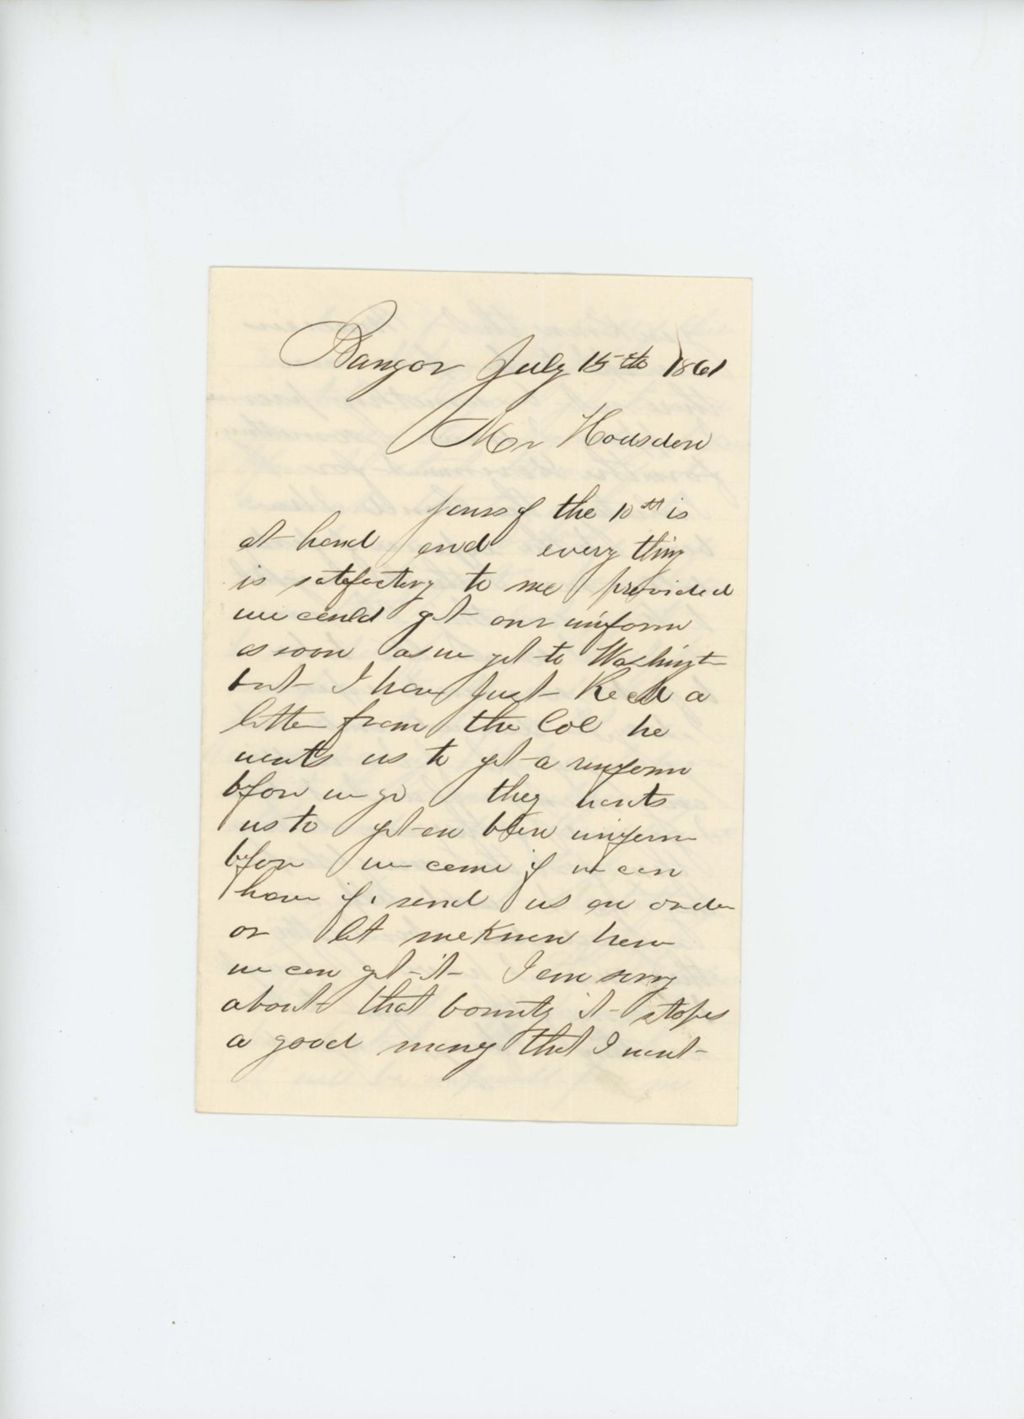 Bangor July 15th 1861
Mr Hodsdon
yours of the 10th is
at hand and every thing
is satefactory to me provided
we could get our uniform
as soon as we get to Washingt
but I have just Recd a
letter from the Col he
wants us to get a uniform
before we go they wants
us to get an blew uniform
before we come if we can
have if, send us an order
or let me know how
we can get it I am sorry
about that bounty it stopes
a good meny that I want